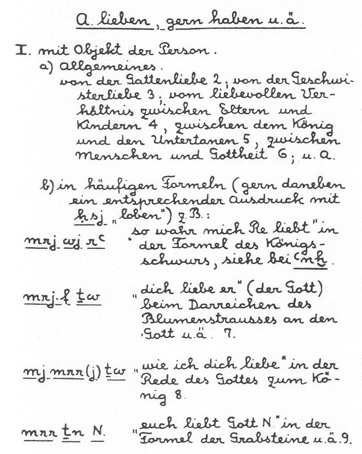 A. lieben, gern haben u.ä.
I. mit Objekt der Person.
a) Allgemeines.
von der Gattenliebe 2; von der Geschwi-
sterliebe 3; vom liebevollen Ver-
hältnis zwischen Eltern und
Kindern 4, zwischen dem König
und den Untertanen 5, zwischen
Menschen und Gottheit 6; u.a.
b) in häufigen Formeln (gern daneben
ein entsprechender Ausdruck mit
ḥsj „loben“) z.B:
mrj wj rꜥ „so wahr mich Re liebt“ in
der Formel des Königs-
schwurs, siehe bei ꜥnḫ.
mrj·f ṯw „dich liebe er“ (der Gott)
beim Darreichen des
Blumenstrausses an den
Gott u.ä. 7.
mj mrr(j) ṯw „wie ich dich liebe“ in der
Rede des Gottes zum Kö-
nig 8.
mrr ṯn N. „euch liebt Gott N.“ in der
Formel der Grabsteine u.ä 9.